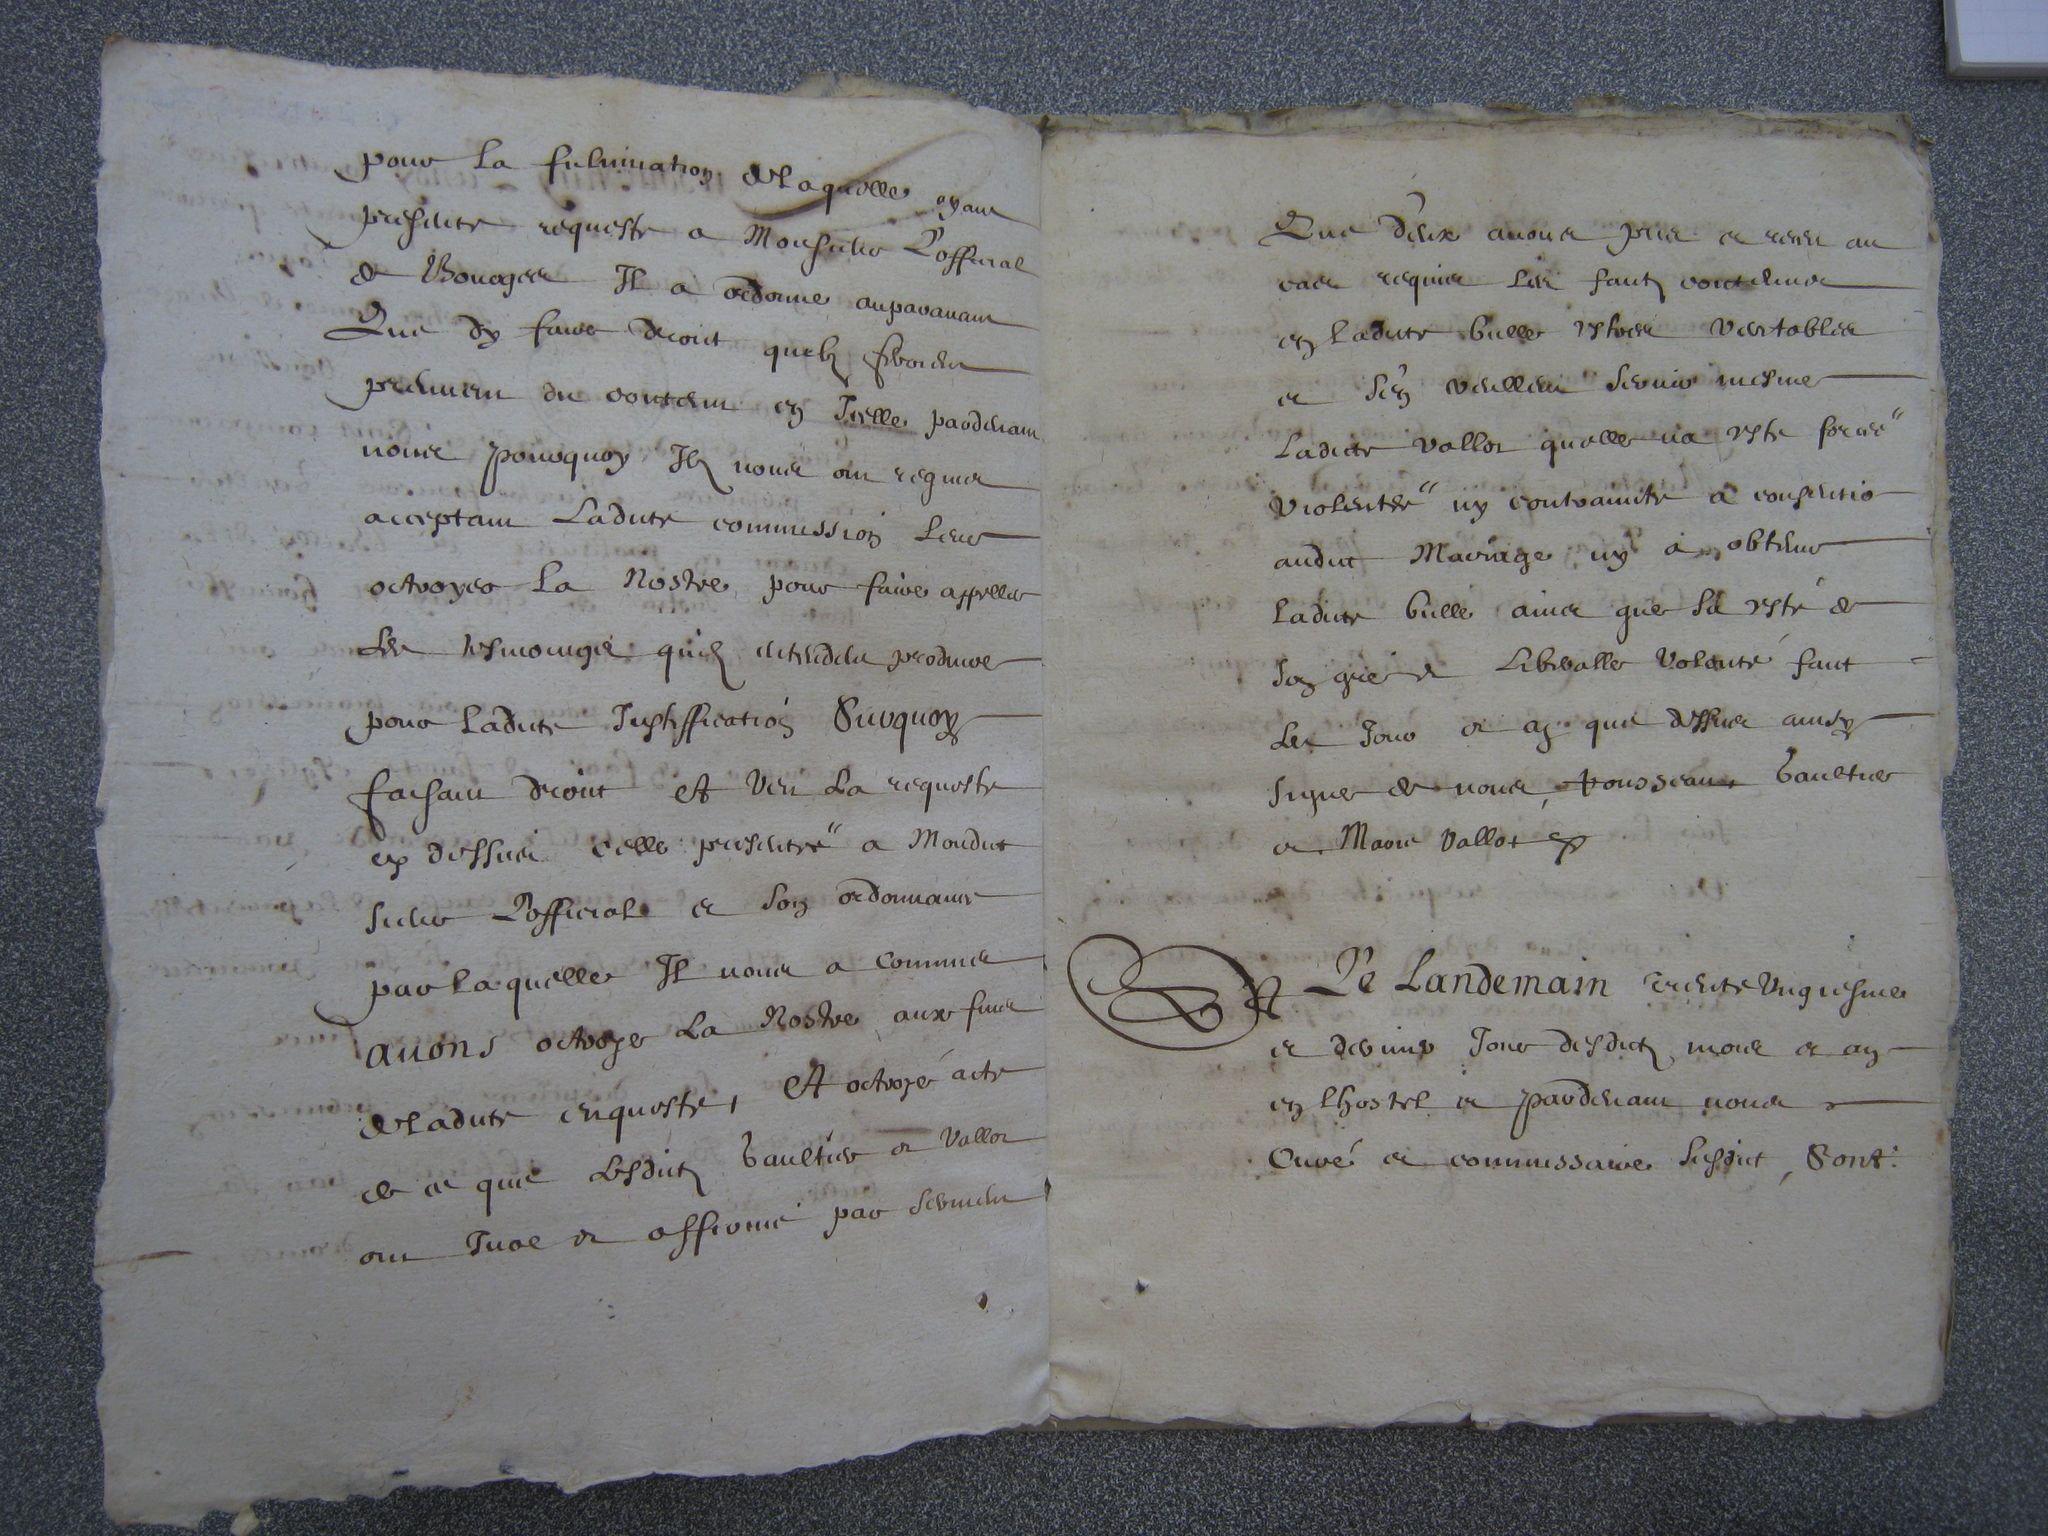 pour la fulmination delaquelle ayant
presenté requeste a Monsieur L'official
de Bourges Il a ordonné auparavant
Que dy faire droict quilz feroient
preuvent du contenu en Icelle pardevant
nous pourquoy Ilz nous ont requis
acceptant Ladicte commission Leur
octroyer La Nostre pour faire appeller
Les tesmoings quilz entendent produire
pour Ladicte Justiffication Surquoy
faisant droict Et Veu La requeste
cy dessus celle presentée a Mondict
sieur L'official et son ordonnance
par laquelle Il nous a commis
avons octroyé La Nostre aux fins
deladicte enqueste, Et octroyé acte
de ce que Lesdictz Gaultier et Vallot
ont Juré et affirmé par serment
Que d'eux avons pris et receu au
cas requis Les faitz contenus
en Ladicte bulle estres veritables
et s'en veullent servir mesme
Ladicte Vallot quelle na esté forcée
violentée ny contraincte a consentir
audict Mariage ny a obtenir
Ladicte bulle ains que sa esté de
son gré et Liberalle volonté faict
Les Jour et an que dessus ainsy
signé de nous, Gaultier
et Marie Vallot
Et Le Landemain trente ungiesme
et dernier Jour desdictz mois et an
en lhostel et pardevant nous
Curé et commissaire susdict, Sont